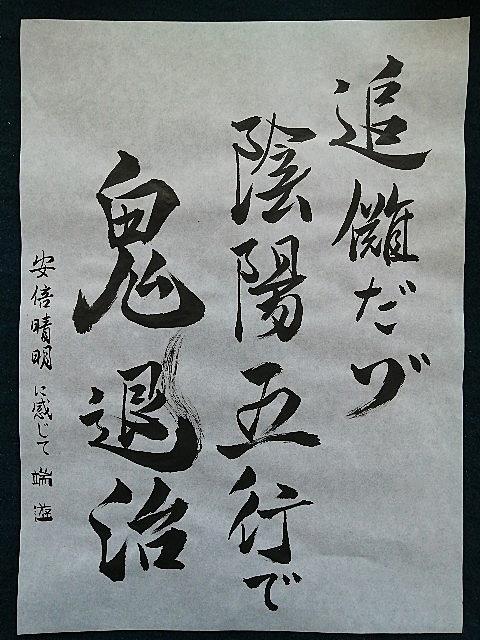 追儺だゾ
陰陽五行で
鬼退治
安倍晴明に感じて 端遊